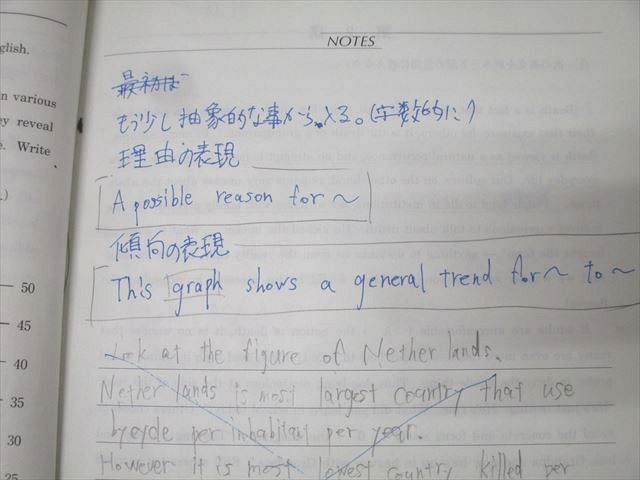 NOTES
glish.
n various
ey reveal
e. Write
.)
50
45
40
35
30
25
最初は
もう少し抽象的な事から、入る。(字数的に)
理由の表現
A possible reason for ～
傾向の表現
This graph shows a general trend for ～ to ～
Look at the figure of Netherlands.
Netherlands is most largest country that use
bycycle per inhabitant per year.
However it is most lowest country killed per